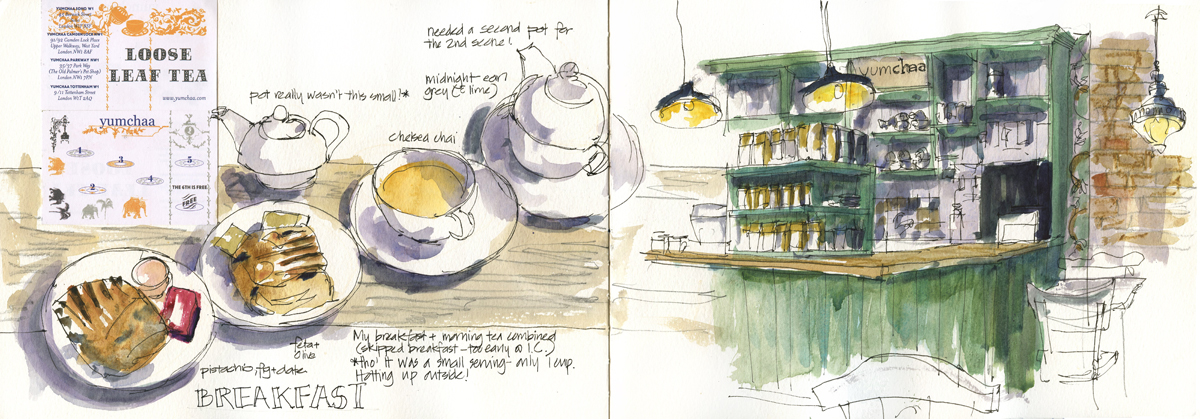 YUMCHAA SOHO W1
YUMCHAA CAMDEN LOCK NW1
91/92 Camden Lock Place
Upper Walkway, West Yard
London NW1 8AF
YUMCHAA PARKWAY NW1
35/37 Park Way
(The Old Palmer's Pet Shop)
London NW1 7PN
YUMCHAA TOTTENHAM W1
9/11 Tottenham Street
London W1T 2AQ
LOOSE
LEAF TEA
www.yumchaa.com
yumchaa
1
2
3
4
5
THE 6TH IS FREE
FREE
pot really wasn't this small!*
chelsea chai
needed a second pot for
the 2nd scene!
midnight earl
grey (+ lime)
yumchaa
feta +
olive
pistachio, fig + date
BREAKFAST
My breakfast + morning tea combined
(skipped breakfast - too early @ I.C.)
*tho' it was a small serving - only 1 cup.
Hotting up outside!